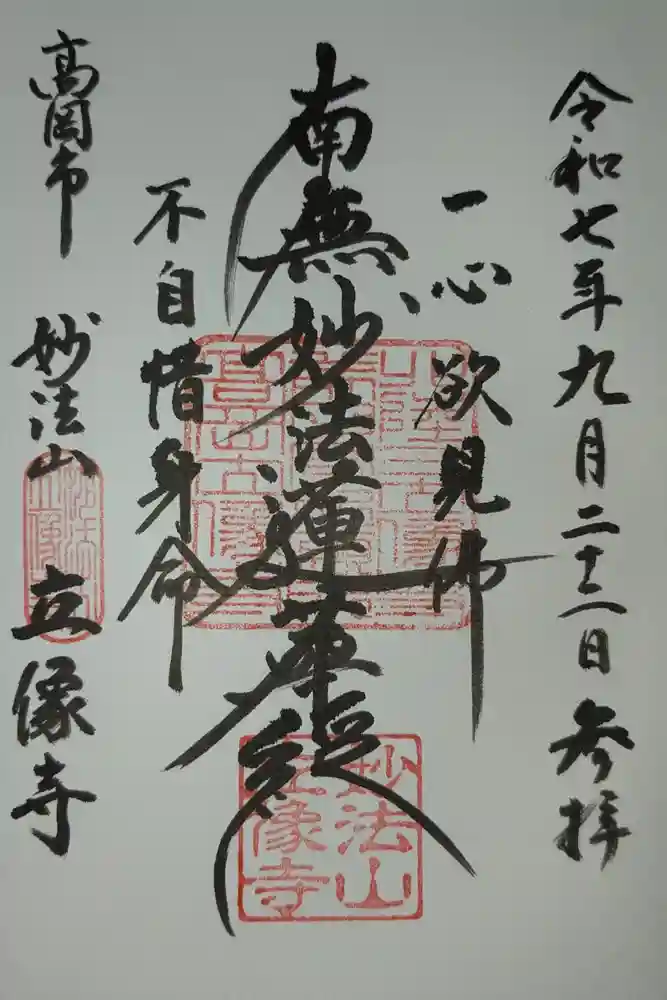 令和七年九月二十二日参拝
一心欲見佛
南無妙法蓮華経
不自惜身命
高岡市 妙法山 立像寺
妙法山
立像寺